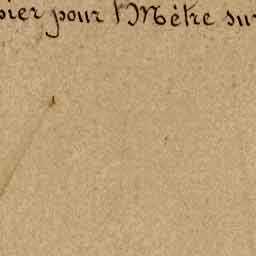 pier pour 1 Mètre sur